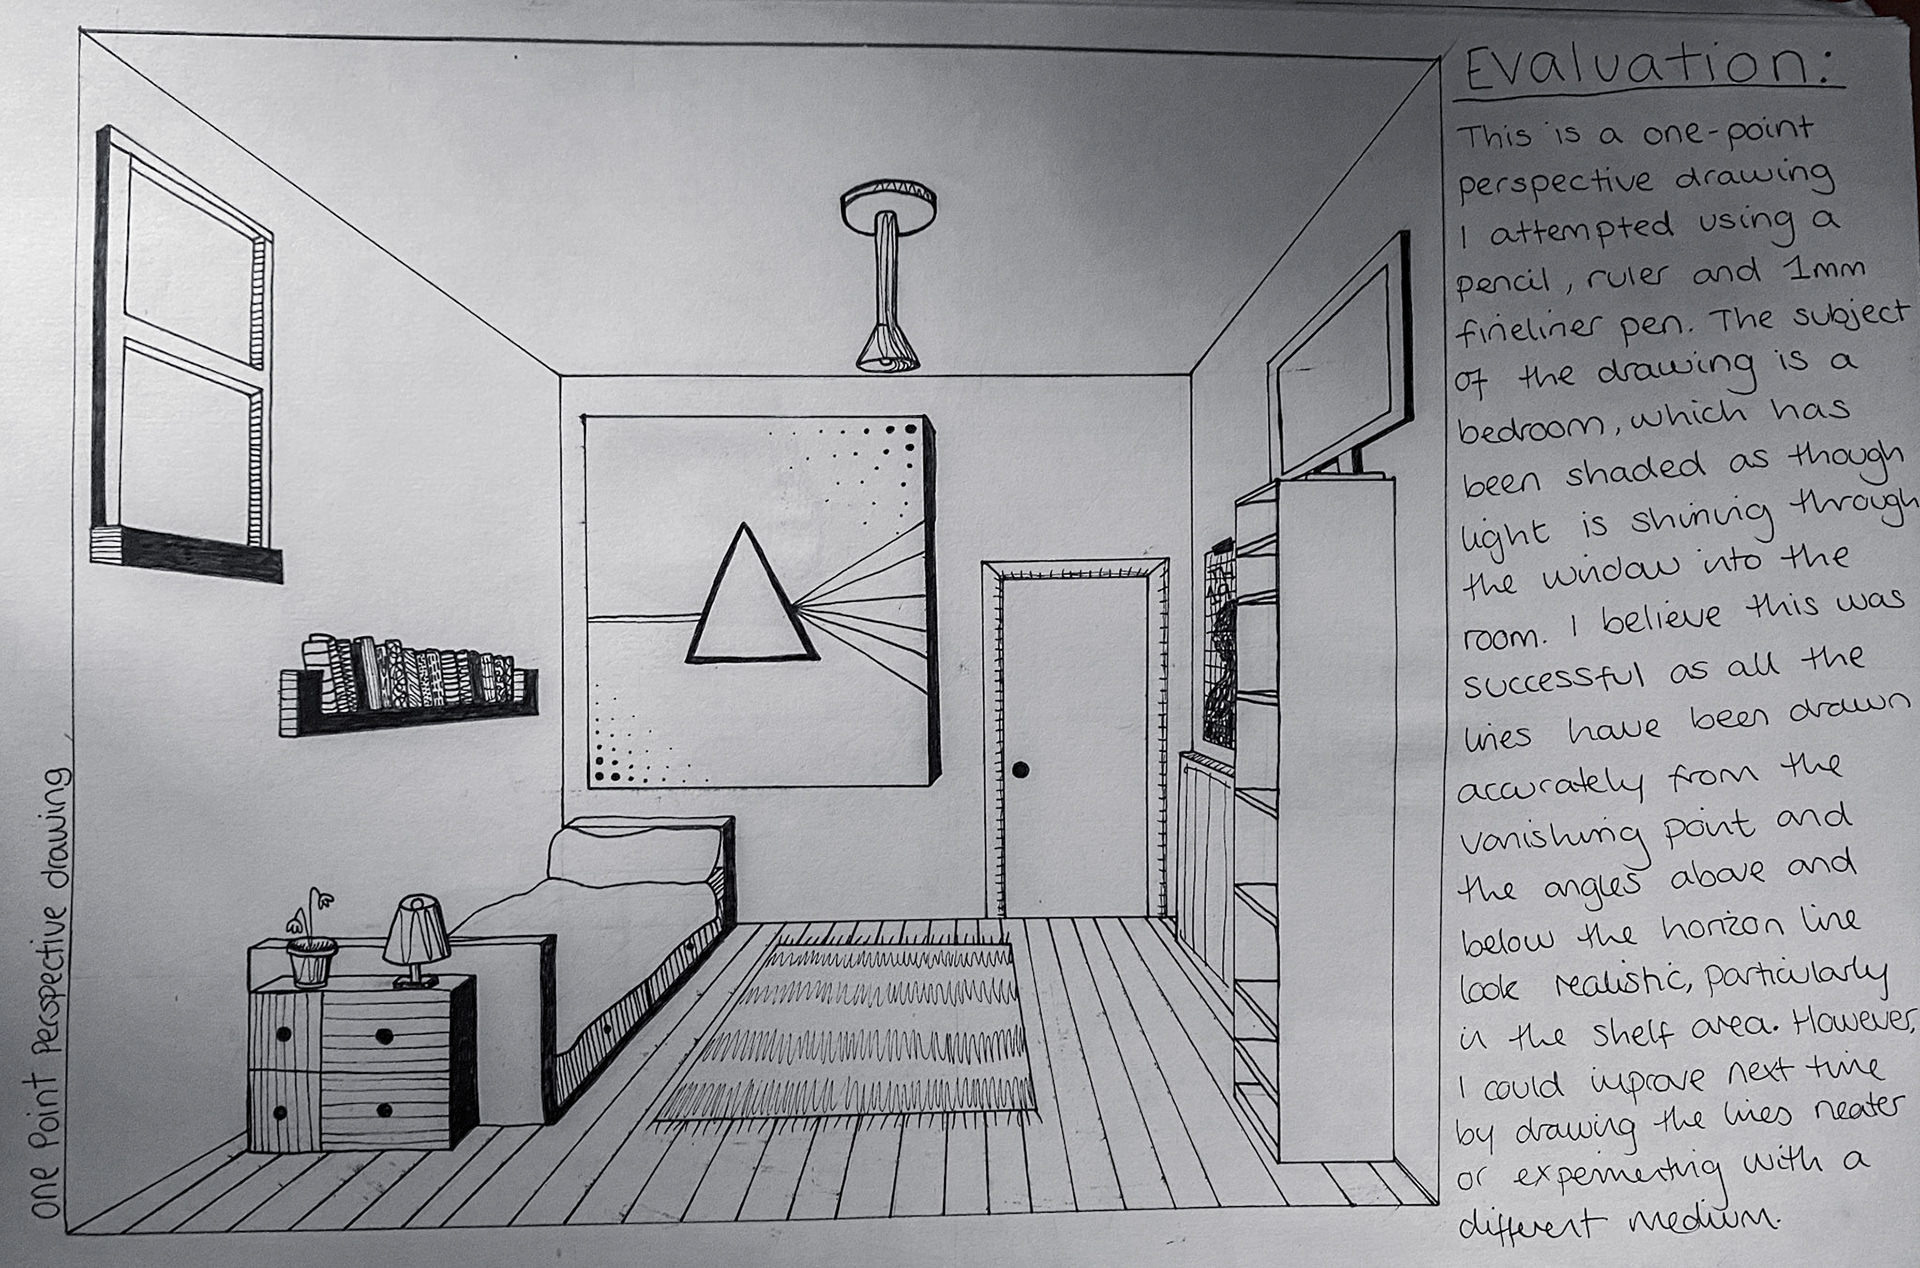 one Point Perspective drawing
Evaluation:
This is a one-point
perspective drawing
I attempted using a
pencil, ruler and 1mm
fineliner pen. The subject
of the drawing is a
bedroom, which has
been shaded as though
light is shining through
the window into the
room. I believe this was
successful as all the
lines have been drawn
accurately from the
vanishing point and
the angles above and
below the horizon line
look realistic, particularly
in the shelf area. However,
I could improve next time
by drawing the lines neater
or experimenting with a
different medium.